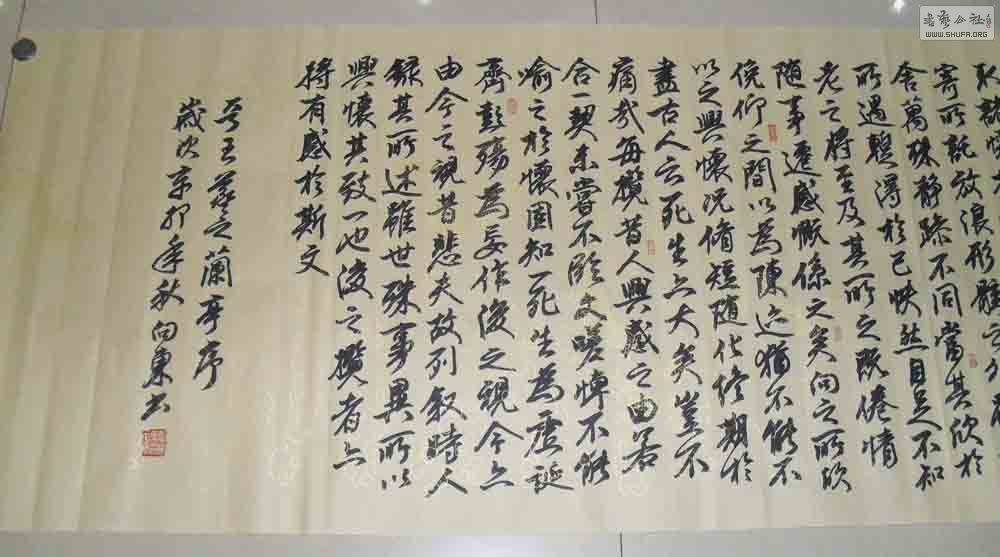 取諸懷
寄所託放浪形骸之外
舍萬殊靜躁不同當其欣於
所遇蹔得於己怏然自足不知
老之將至及其所之既倦情
隨事遷感慨係之矣向之所欣
俛仰之間以為陳迹猶不能不
以之興懷況脩短隨化終期於
盡古人云死生亦大矣豈不
痛哉每攬昔人興感之由若
合一契未嘗不臨文嗟悼不能
喻之於懷固知一死生為虛誕
齊彭殤為妄作後之視今亦
由今之視昔悲夫故列敘時人
錄其所述雖世殊事異所以
興懷其致一也後之攬者亦
將有感於斯文
晉王羲之蘭亭序
歲次辛卯年秋向東書
書藝公社
WWW.SHUFA.ORG